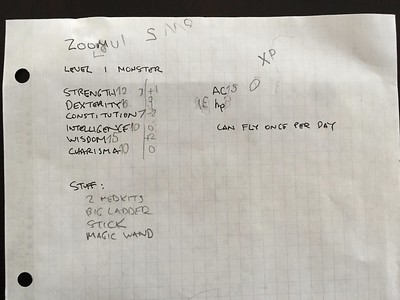 LEVEL 1 MONSTER
XP
0
STRENGTH 12 +1
DEXTERITY
CONSTITUTION 7 -2
INTELLIGENCE 10 0
WISDOM 15 +2
CHARISMA 10 0
AC 15
hp
CAN FLY ONCE PER DAY
STUFF:
2 MEDKITS
BIG LADDER
STICK
MAGIC WAND